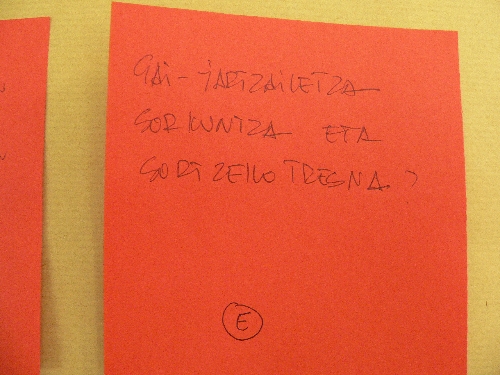 GAI-JARTZAILETZA
SORKUNTZA ETA
SORTZEKO TRESNA?
E